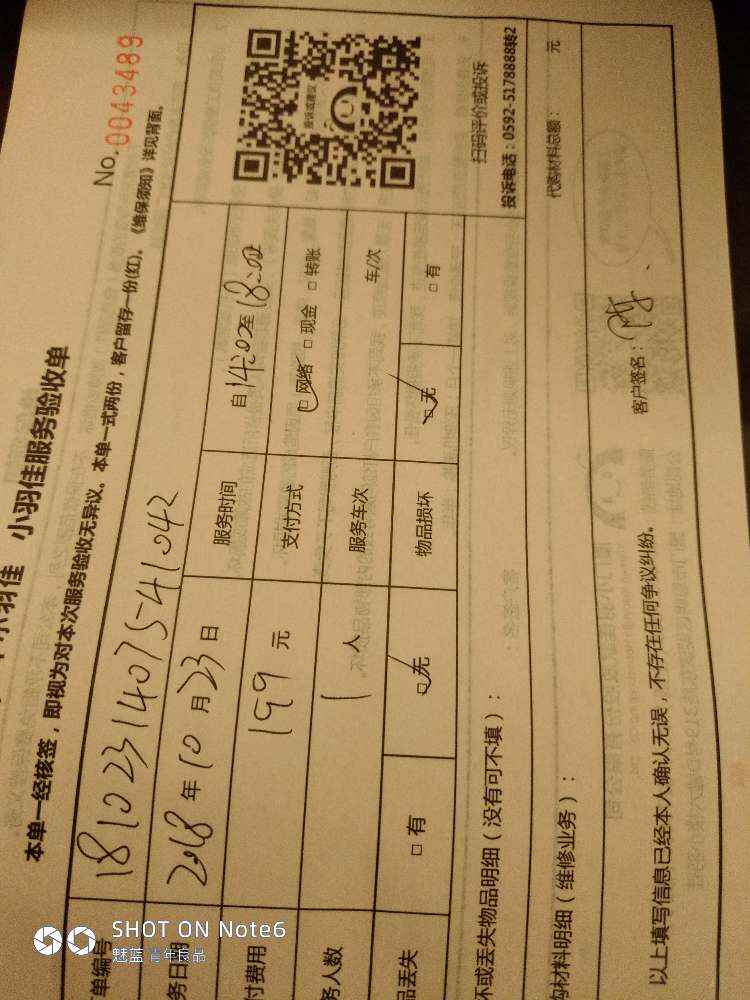 小羽佳 小羽佳服务验收单
No.0043489
本单一经核签，即视为对本次服务验收无异议。本单一式两份，客户留存一份(红)。《维保须知》详见背面。
单编号 181023140754 1042
务日期 2018年10月23日 服务时间 自14:00至18:00
付费用 199元 支付方式 □网络 □现金 □转账
务人数 1人 服务车次 车/次
品丢失 □有 □无 物品损坏 □无 □有
投诉或建议
扫码评价或投诉
投诉电话：0592-5178888转2
坏或丢失物品明细（没有可不填）：
购材料明细（维修业务）： 代购材料总额： 元
以上填写信息已经本人确认无误，不存在任何争议纠纷。 客户签名：
SHOT ON Note6
魅蓝 青年良品